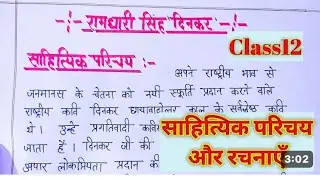 -:- रामधारी सिंह दिनकर -:-
साहित्यिक परिचय :-
Class12
अपने राष्ट्रीय भाव से
जनमानस के चेतना को नयी स्फूर्ति प्रदान करने वाले
राष्ट्रीय कवि दिनकर छायावादोत्तर काल के सर्वश्रेष्ठ कवि
थे। उन्हे प्रगतिवादी कवि
जाता हैं। दिनकर जी की
अपार लोकप्रियता प्रदान की
साहित्यिक परिचय
और रचनाएँ
3:02